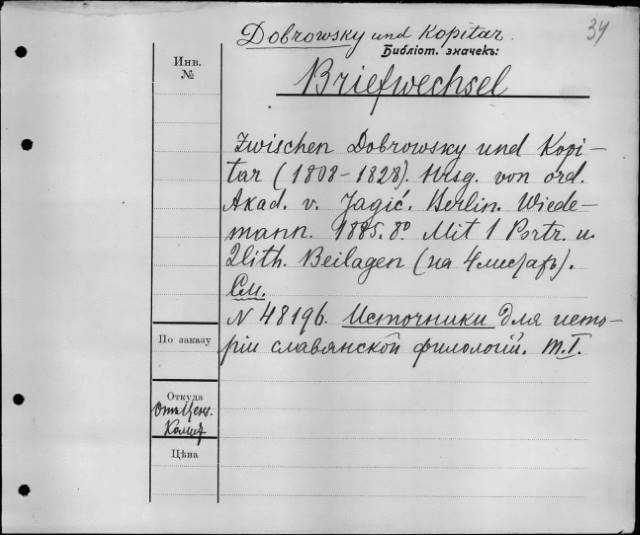 Dobrowsky und Kopitar.
34
Библіот. значекъ:
Инв.
№
Briefwechsel
Zwischen Dobrowsky und Kopi-
tar (1808-1828). Hrsg. von ord.
Akad. v. Jagić. Berlin. Wiede-
mann. 1885. 8°. Mit 1 Portr. u.
2 lith. Beilagen (на 4
См.
N 48196. Источники для исто-
ріи славянской филологій. т. I.
По заказу
Откуда
Отъ Ценз.
Цѣна